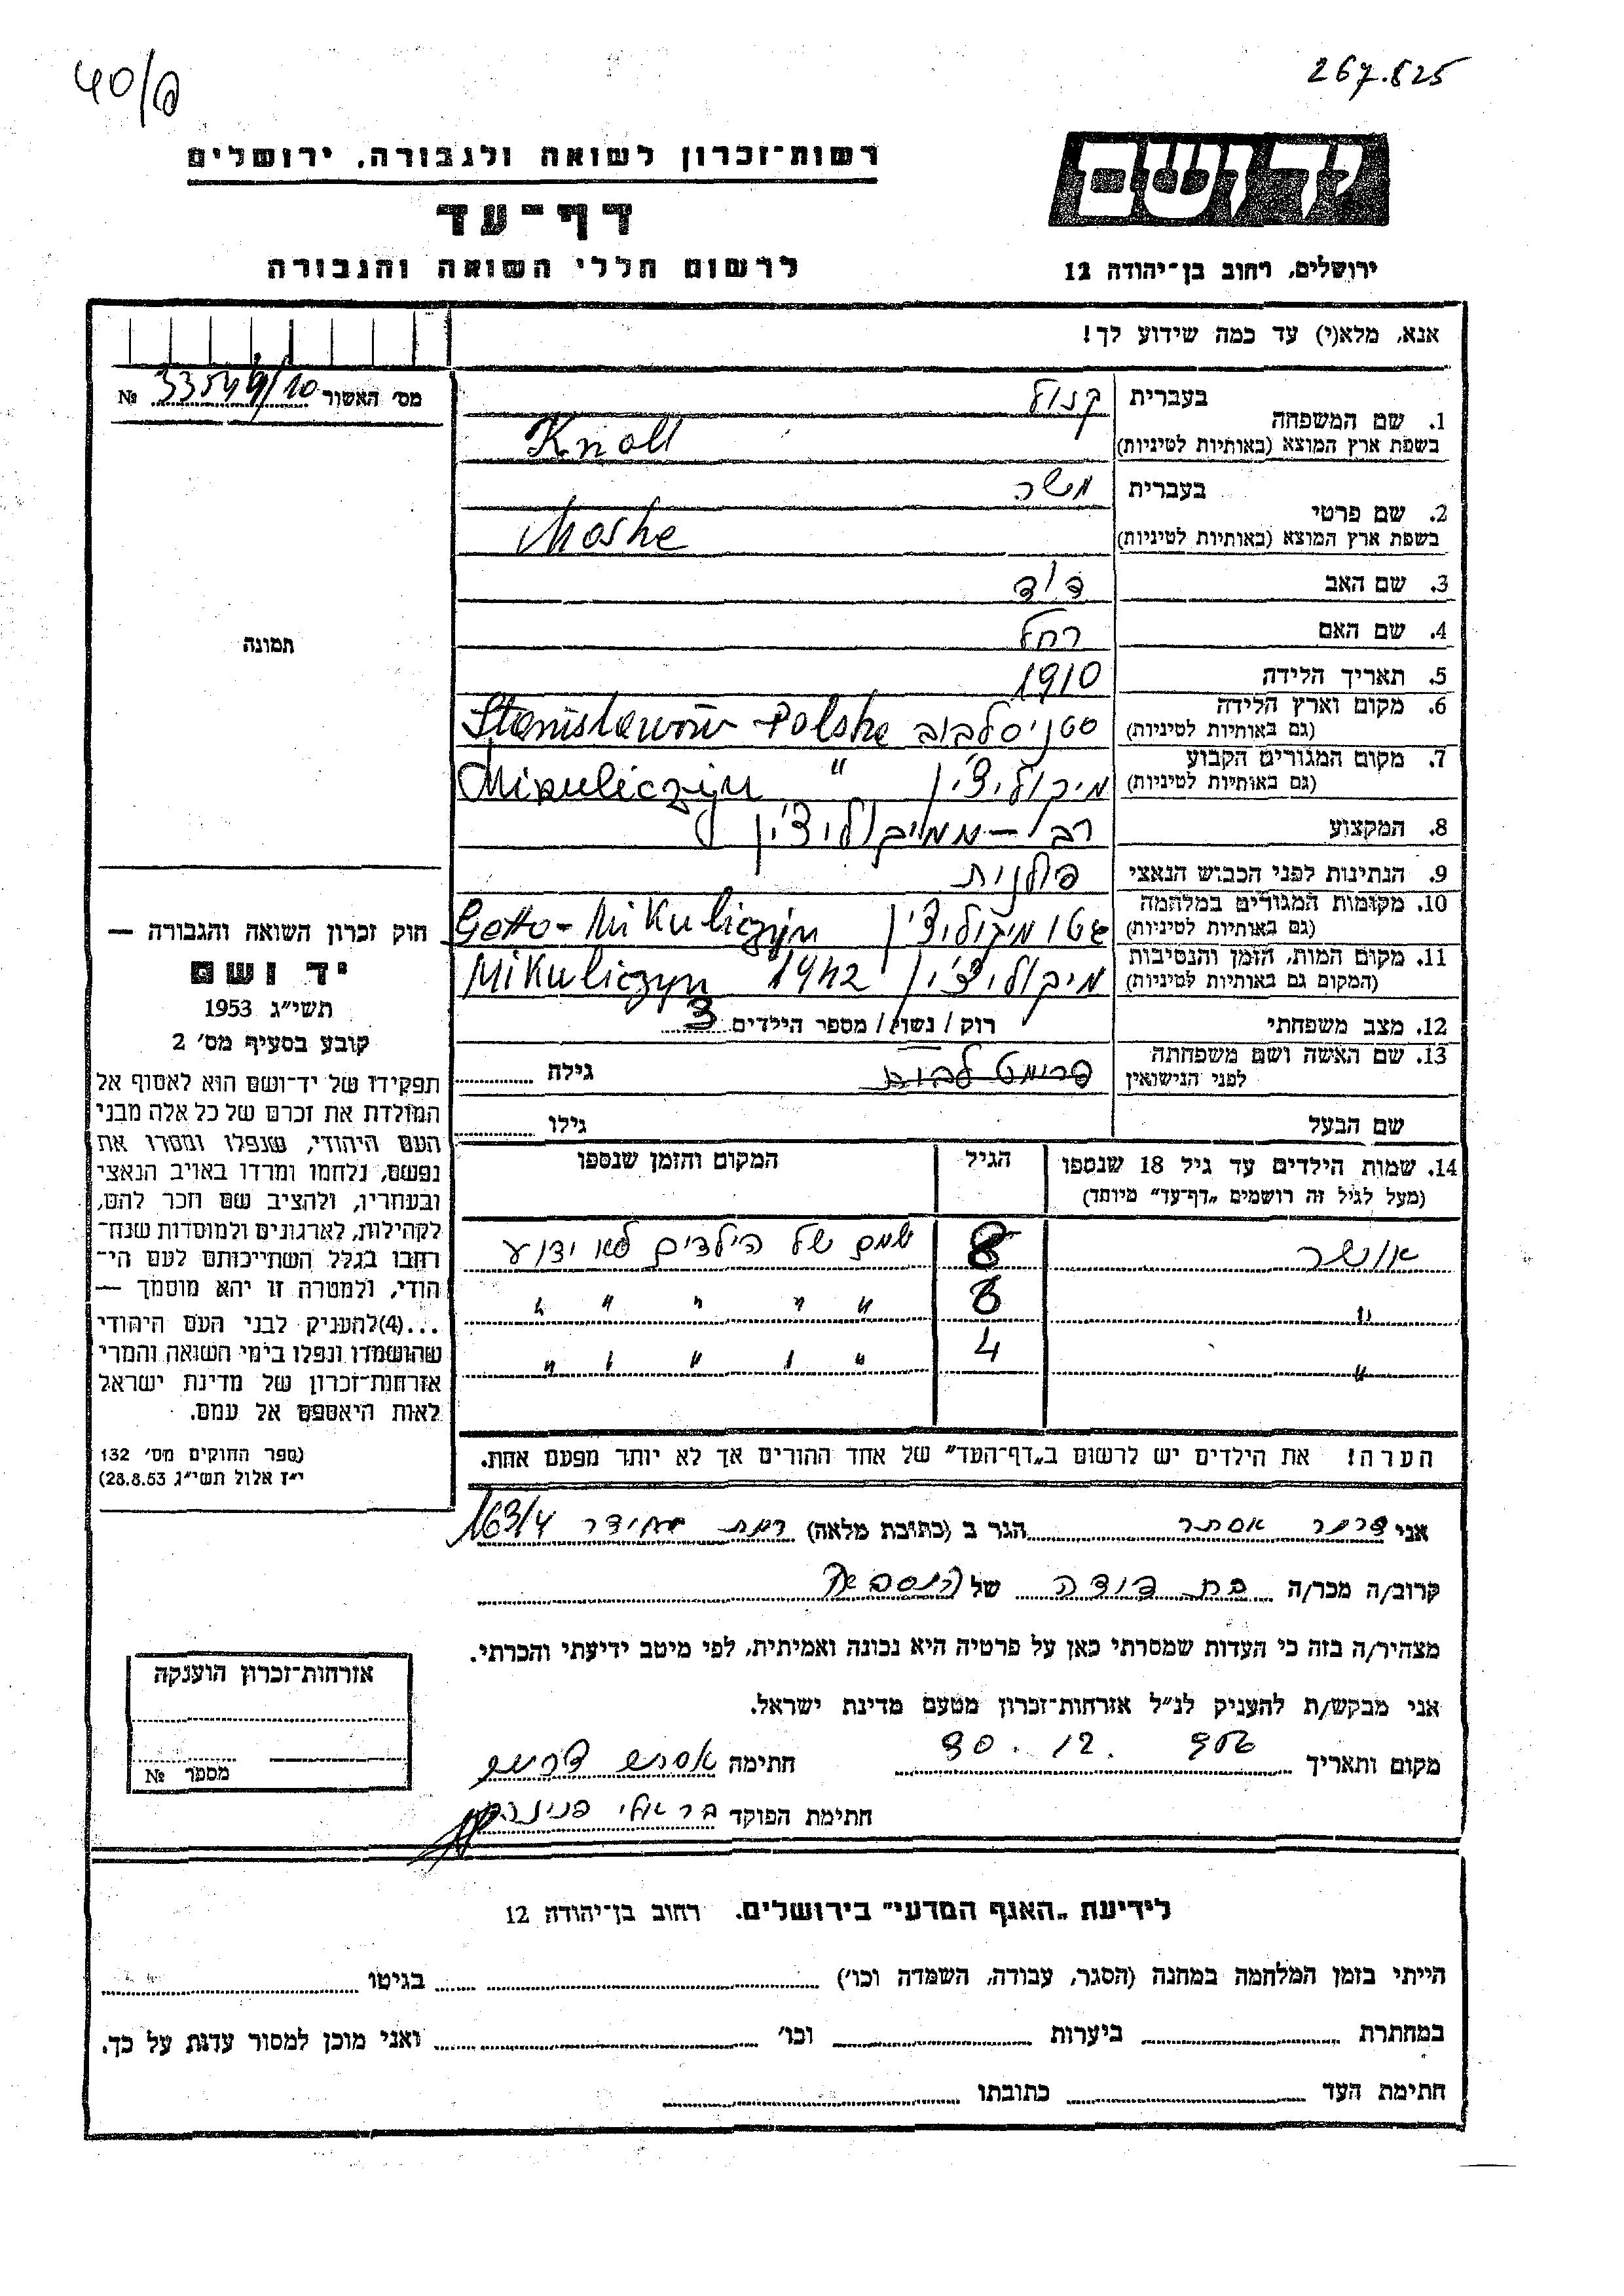 40/6
267.825
רשות־זכרון לשואה ולגבורה, ירושלים
יד ושם
דף־עד
לרשום חללי השואה והגבורה
ירושלים, רחוב בן־יהודה 12
אנא, מלא(י) עד כמה שידוע לך!
מס' האשור 33549/10 №
1. שם המשפחה בעברית קנול
בשפת ארץ המוצא (באותיות לטיניות) Knoll
2. שם פרטי בעברית משה
בשפת ארץ המוצא (באותיות לטיניות) Moshe
3. שם האב דוד
4. שם האם רחל
5. תאריך הלידה 1910
6. מקום וארץ הלידה (גם באותיות לטיניות) סטניסלבוב Stanisławów Polska
7. מקום המגורים הקבוע (גם באותיות לטיניות) מיקוליצ'ין " Mikuliczyn
8. המקצוע רבי – ממיקוליצ'ין
9. הנתינות לפני הכבוש הנאצי פולנית
10. מקומות המגורים במלחמה (גם באותיות לטיניות) גטו מיקוליצ'ין Getto-Mikuliczyn
11. מקום המות, הזמן והנסיבות (המקום גם באותיות לטיניות) מיקוליצ'ין 1942 Mikuliczyn
12. מצב משפחתי רוק / נשוי / מספר הילדים 3
13. שם האשה ושם משפחתה לפני הנישואין גילה
שם הבעל גילו
14. שמות הילדים עד גיל 18 שנספו הגיל המקום והזמן שנספו
(מעל לגיל זה רושמים "דף־עד" מיוחד)
אושר 8 שמם של הילדים לא ידוע
" 6 " " " " "
" 4 " " " " "
הערה! את הילדים יש לרשום ב"דף־העד" של אחד ההורים אך לא יותר מפעם אחת.
תמונה
חוק זכרון השואה והגבורה —
יד ושם
תשי"ג 1953
קובע בסעיף מס' 2
תפקידו של יד־ושם הוא לאסוף אל
המולדת את זכרם של כל אלה מבני
העם היהודי, שנפלו ומסרו את
נפשם, נלחמו ומרדו באויב הנאצי
ובעוזריו, ולהציב שם וזכר להם,
לקהילות, לארגונים ולמוסדות שנח־
רבו בגלל השתייכותם לעם הי־
הודי, ולמטרה זו יהא מוסמך —
...(4)להעניק לבני העם היהודי
שהושמדו ונפלו בימי השואה והמרי
אזרחות־זכרון של מדינת ישראל
לאות היאספם אל עמם.
(ספר החוקים מס' 132
י"ז אלול תשי"ג 28.8.53)
אני דרער אסתר הגר ב (כתובת מלאה) רמת 163/4
קרוב/ה מכר/ה בת דודה של
מצהיר/ה בזה כי העדות שמסרתי כאן על פרטיה היא נכונה ואמיתית, לפי מיטב ידיעתי והכרתי.
אני מבקש/ת להעניק לנ"ל אזרחות־זכרון מטעם מדינת ישראל.
מקום ותאריך 956 .12 .30 חתימה
חתימת הפוקד בר אלי פנינה
אזרחות־זכרון הוענקה
מספר №
לידיעת "האגף המדעי" בירושלים. רחוב בן־יהודה 12
הייתי בזמן המלחמה במחנה (הסגר, עבודה, השמדה וכו') בגיטו
במחתרת ביערות וכו' ואני מוכן למסור עדות על כך.
חתימת העד כתובתו